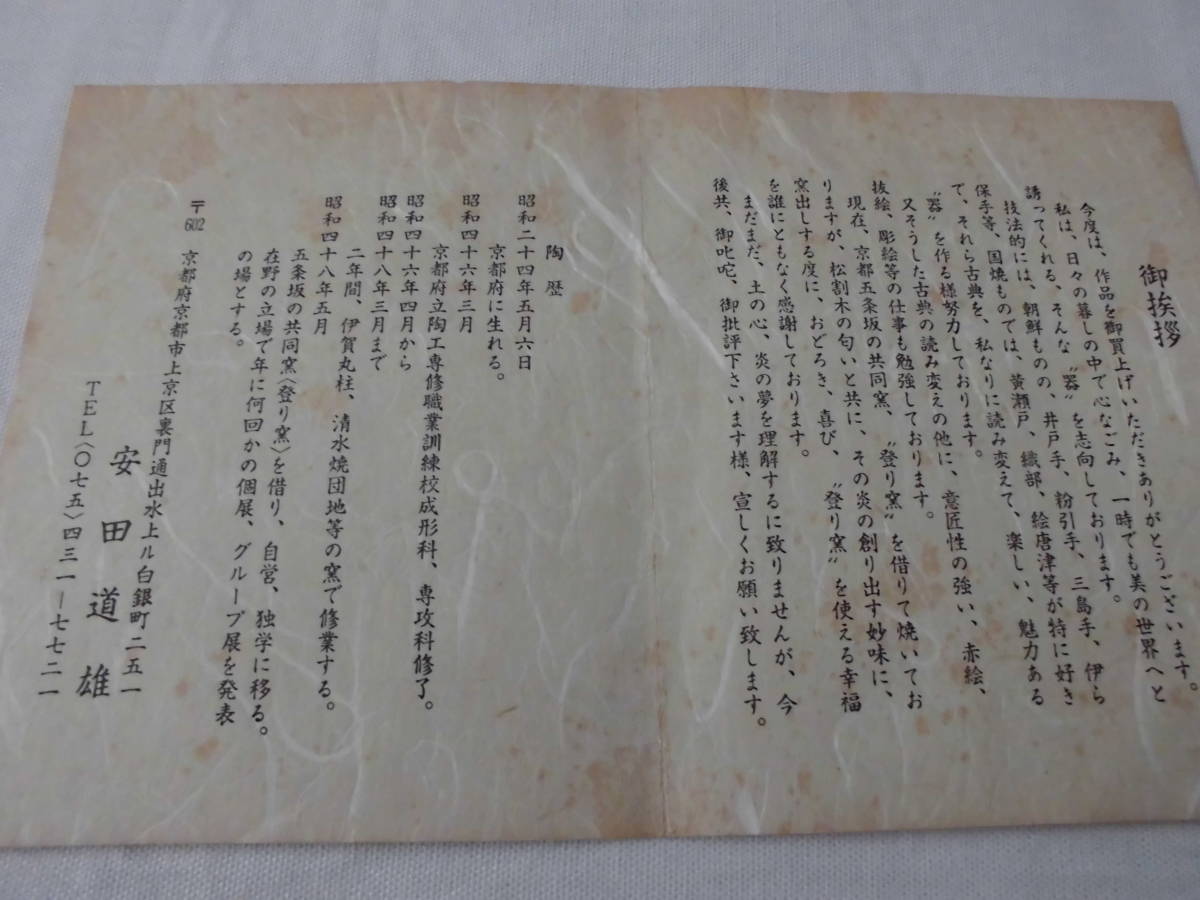 御挨拶
今度は、作品を御買上げいただきありがとうございます。
私は、日々の暮しの中で心なごみ、一時でも美の世界へと
誘ってくれる、そんな〝器〟を志向しております。
技法的には、朝鮮ものの、井戸手、粉引手、三島手、伊ら
保手等、国焼ものでは、黄瀬戸、織部、絵唐津等が特に好き
で、それら古典を、私なりに読み変えて、楽しい、魅力ある
〝器〟を作る様努力しております。
又そうした古典の読み変えの他に、意匠性の強い、赤絵、
抜絵、彫絵等の仕事も勉強しております。
現在、京都五条坂の共同窯、〝登り窯〟を借りて焼いてお
りますが、松割木の匂いと共に、その炎の創り出す妙味に、
窯出しする度に、おどろき、喜び、〝登り窯〟を使える幸福
を誰にともなく感謝しております。
まだまだ、土の心、炎の夢を理解するに致りませんが、今
後共、御叱咜、御批評下さいます様、宣しくお願い致します。
陶歴
昭和二十四年五月六日
京都府に生れる。
昭和四十六年三月
京都府立陶工専修職業訓練校成形科、専攻科修了。
昭和四十六年四月から
昭和四十八年三月まで
二年間、伊賀丸柱、清水焼団地等の窯で修業する。
昭和四十八年五月
五条坂の共同窯〈登り窯〉を借り、自営、独学に移る。
在野の立場で年に何回かの個展、グループ展を発表
の場とする。
〒602 京都府京都市上京区裏門通出水上ル白銀町二五一
安田道雄
TEL〈〇七五〉四三一ー七七二一